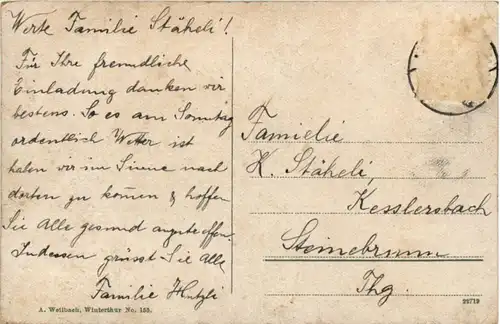 Werte Familie Stäheli!
Für Ihre freundliche
Einladung danken wir
bestens. So es am Sonntag
ordentlich Wetter ist
haben wir im Sinne nach
dorten zu kommen & hoffen
Sie Alle gesund anzutreffen.
Indessen grüsst Sie Alle
Familie Hutzli
A. Weilbach, Winterthur No. 155.
Familie
H. Stäheli,
Kesslersbach
Steinebrunn
Thg.
22719